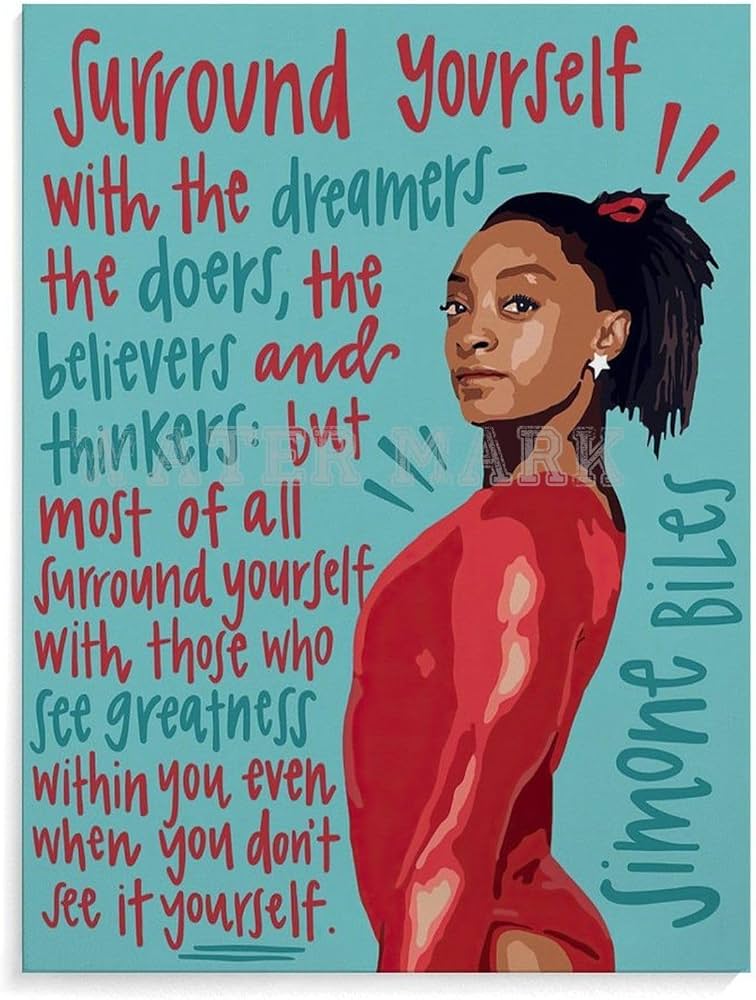 Surround yourself
with the dreamers-
the doers, the
believers and
thinkers; but
most of all
surround yourself
with those who
see greatness
within you even
when you don't
see it yourself.
Simone Biles
WATER MARK